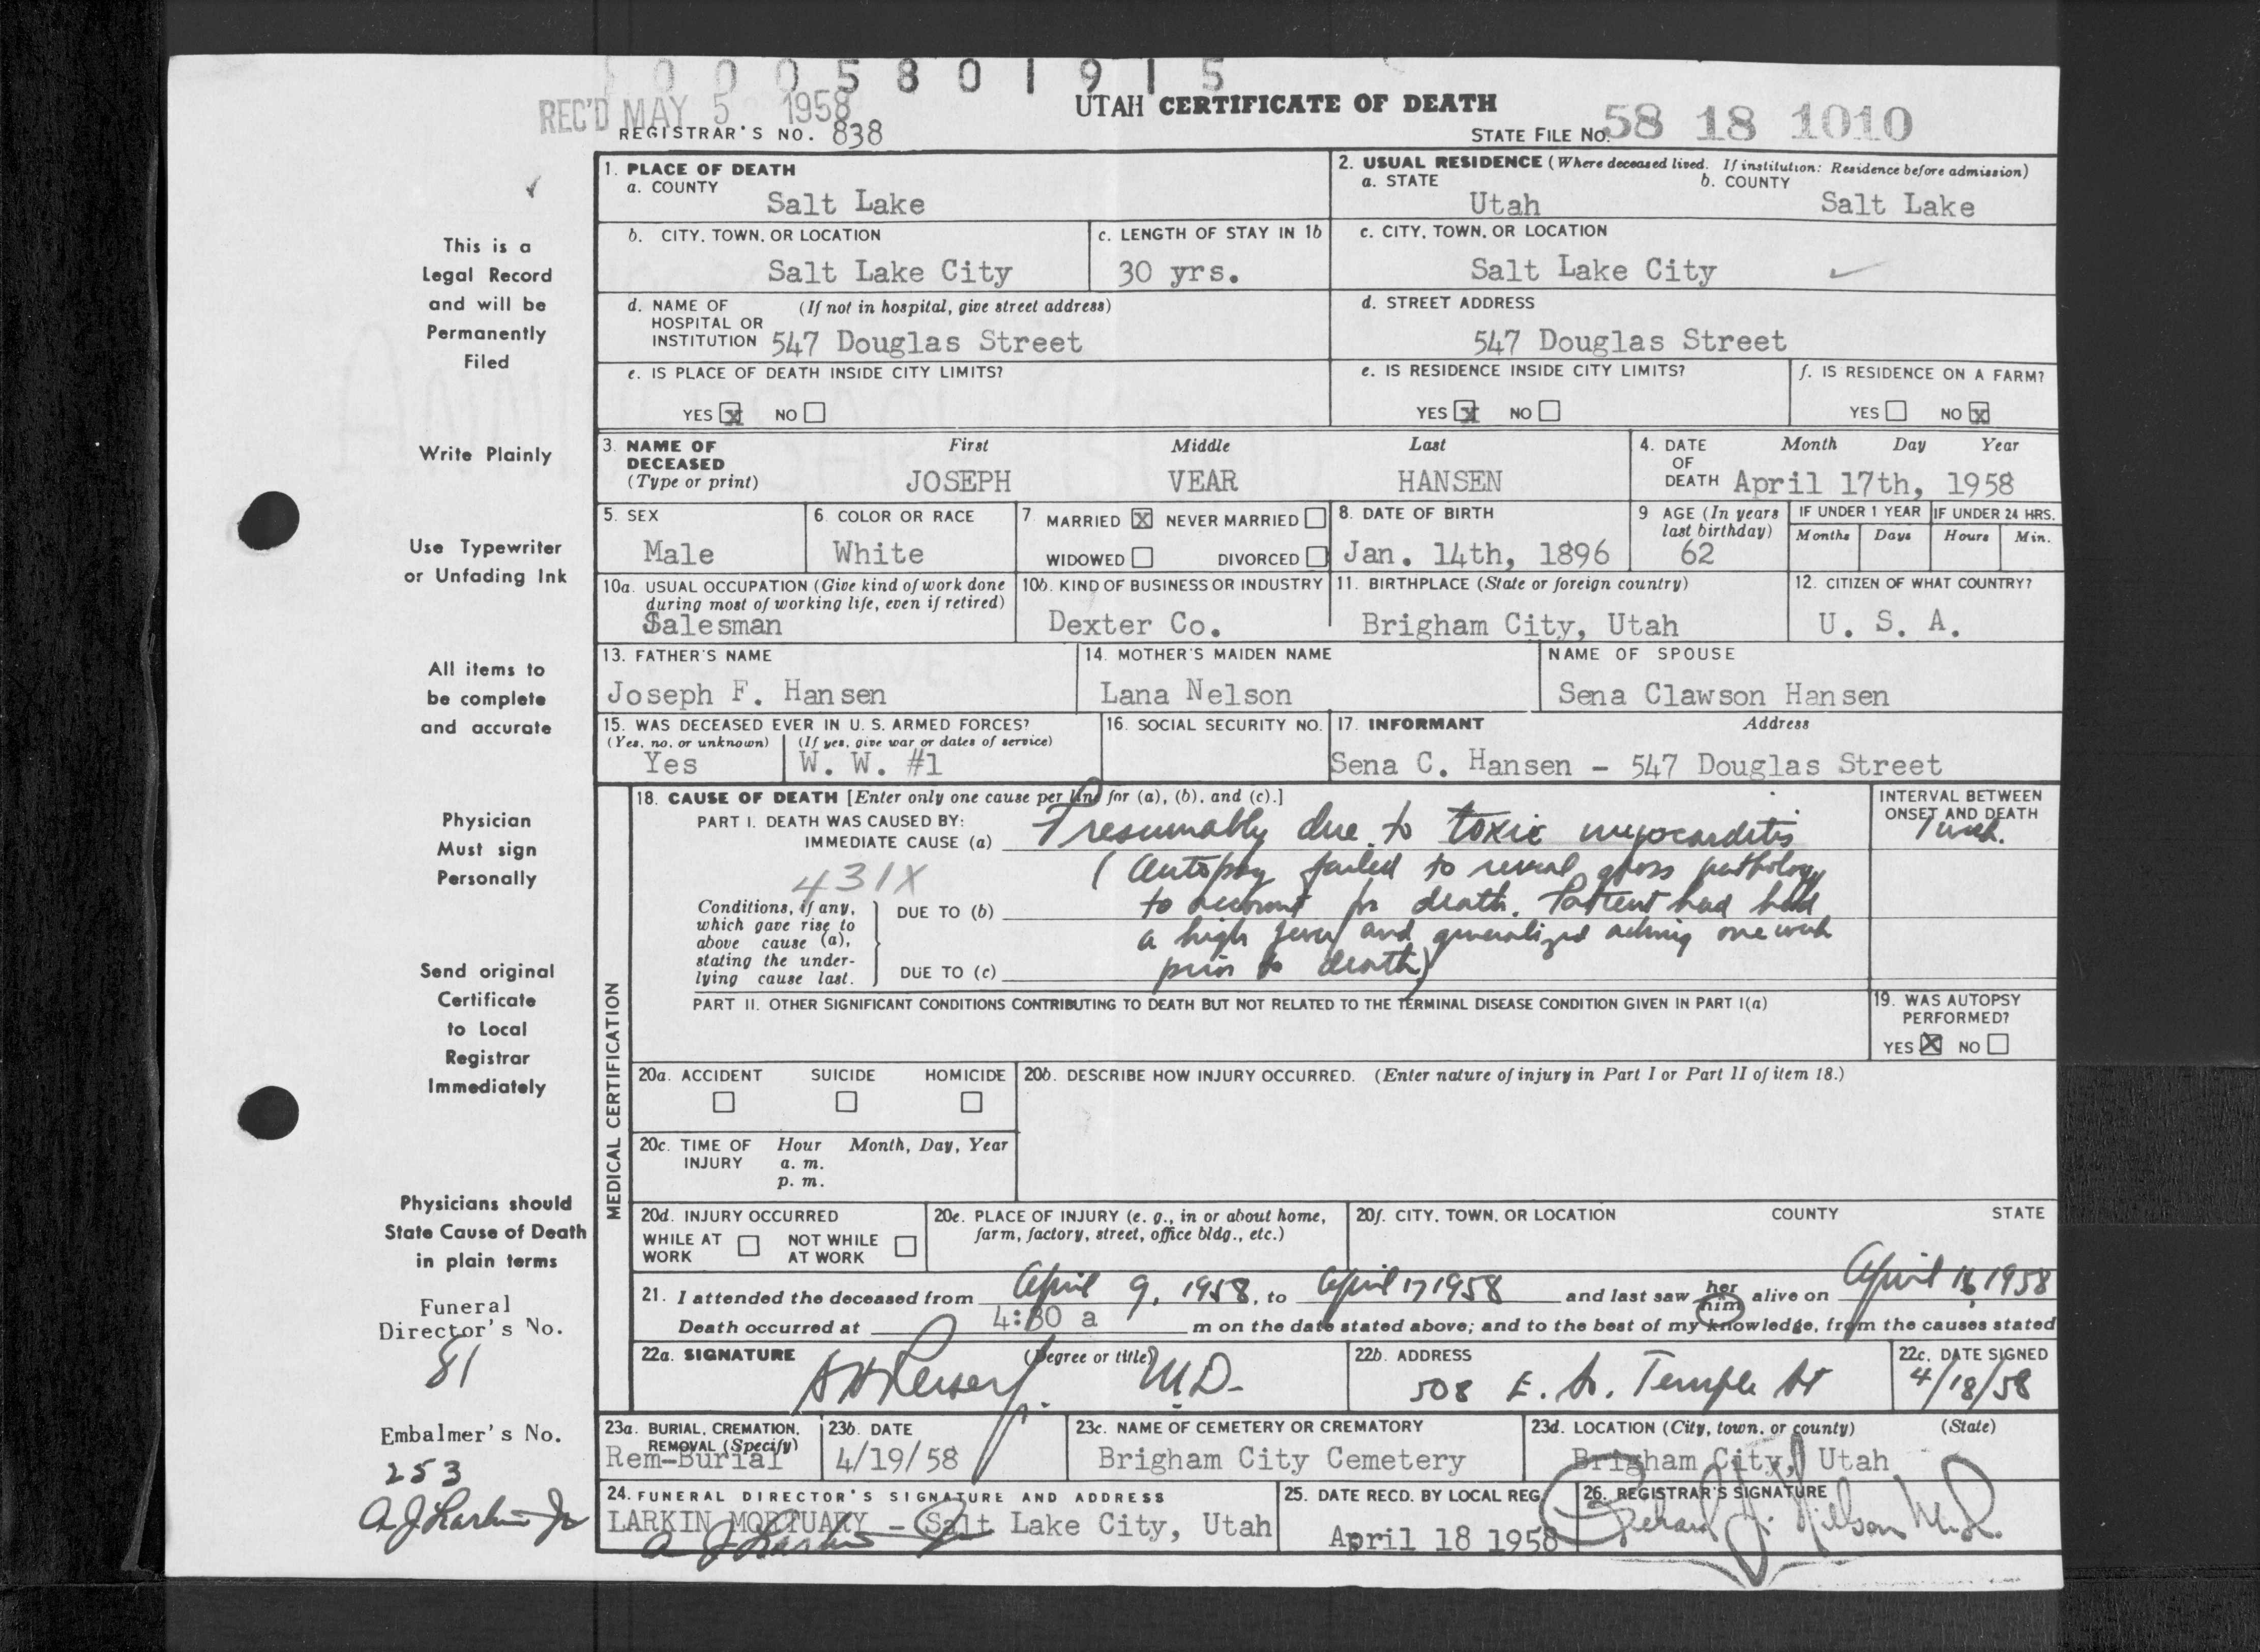 0005801915
REC'D MAY 5 1958
UTAH CERTIFICATE OF DEATH
REGISTRAR'S NO. 838
STATE FILE NO. 58 18 1010
This is a
Legal Record
and will be
Permanently
Filed
Write Plainly
Use Typewriter
or Unfading Ink
All items to
be complete
and accurate
Physician
Must sign
Personally
Send original
Certificate
to Local
Registrar
Immediately
Physicians should
State Cause of Death
in plain terms
Funeral
Director's No.
81
Embalmer's No.
253
A J Larkin Jr
1. PLACE OF DEATH
a. COUNTY
Salt Lake
2. USUAL RESIDENCE (Where deceased lived. If institution: Residence before admission)
a. STATE b. COUNTY
Utah Salt Lake
b. CITY, TOWN, OR LOCATION
Salt Lake City
c. LENGTH OF STAY IN 1b
30 yrs.
c. CITY, TOWN, OR LOCATION
Salt Lake City
d. NAME OF (If not in hospital, give street address)
HOSPITAL OR
INSTITUTION 547 Douglas Street
d. STREET ADDRESS
547 Douglas Street
e. IS PLACE OF DEATH INSIDE CITY LIMITS?
YES X NO
e. IS RESIDENCE INSIDE CITY LIMITS?
YES X NO
f. IS RESIDENCE ON A FARM?
YES NO X
3. NAME OF First Middle Last
DECEASED
(Type or print) JOSEPH VEAR HANSEN
4. DATE Month Day Year
OF
DEATH April 17th, 1958
5. SEX
Male
6. COLOR OR RACE
White
7. MARRIED X NEVER MARRIED
WIDOWED DIVORCED
8. DATE OF BIRTH
Jan. 14th, 1896
9 AGE (In years
last birthday)
62
IF UNDER 1 YEAR IF UNDER 24 HRS.
Months Days Hours Min.
10a. USUAL OCCUPATION (Give kind of work done
during most of working life, even if retired)
Salesman
10b. KIND OF BUSINESS OR INDUSTRY
Dexter Co.
11. BIRTHPLACE (State or foreign country)
Brigham City, Utah
12. CITIZEN OF WHAT COUNTRY?
U. S. A.
13. FATHER'S NAME
Joseph F. Hansen
14. MOTHER'S MAIDEN NAME
Lana Nelson
NAME OF SPOUSE
Sena Clawson Hansen
15. WAS DECEASED EVER IN U. S. ARMED FORCES?
(Yes, no, or unknown) (If yes, give war or dates of service)
Yes W. W. #1
16. SOCIAL SECURITY NO.
17. INFORMANT Address
Sena C. Hansen - 547 Douglas Street
MEDICAL CERTIFICATION
18. CAUSE OF DEATH [Enter only one cause per line for (a), (b), and (c).]
PART I. DEATH WAS CAUSED BY:
IMMEDIATE CAUSE (a) Presumably due to toxic myocarditis
(Autopsy failed to reveal gross pathology
431X
Conditions, if any,
which gave rise to
above cause (a),
stating the under-
lying cause last.
DUE TO (b) to account for death. Patient had had
a high fever and generalized aching one week
DUE TO (c) prior to death)
INTERVAL BETWEEN
ONSET AND DEATH
1 week.
PART II. OTHER SIGNIFICANT CONDITIONS CONTRIBUTING TO DEATH BUT NOT RELATED TO THE TERMINAL DISEASE CONDITION GIVEN IN PART I(a)
19. WAS AUTOPSY
PERFORMED?
YES X NO
20a. ACCIDENT SUICIDE HOMICIDE
20b. DESCRIBE HOW INJURY OCCURRED. (Enter nature of injury in Part I or Part II of item 18.)
20c. TIME OF Hour Month, Day, Year
INJURY a. m.
p. m.
20d. INJURY OCCURRED
WHILE AT NOT WHILE
WORK AT WORK
20e. PLACE OF INJURY (e. g., in or about home,
farm, factory, street, office bldg., etc.)
20f. CITY, TOWN, OR LOCATION COUNTY STATE
21. I attended the deceased from April 9, 1958, to April 17 1958 and last saw her him alive on April 16, 1958
Death occurred at 4:30 a m on the date stated above; and to the best of my knowledge, from the causes stated
22a. SIGNATURE (Degree or title)
M.D.
22b. ADDRESS
508 E. So. Temple St
22c. DATE SIGNED
4/18/58
23a. BURIAL, CREMATION,
REMOVAL (Specify)
Rem-Burial
23b. DATE
4/19/58
23c. NAME OF CEMETERY OR CREMATORY
Brigham City Cemetery
23d. LOCATION (City, town, or county) (State)
Brigham City, Utah
24. FUNERAL DIRECTOR'S SIGNATURE AND ADDRESS
LARKIN MORTUARY - Salt Lake City, Utah
A J Larkin Jr
25. DATE RECD. BY LOCAL REG.
April 18 1958
26. REGISTRAR'S SIGNATURE